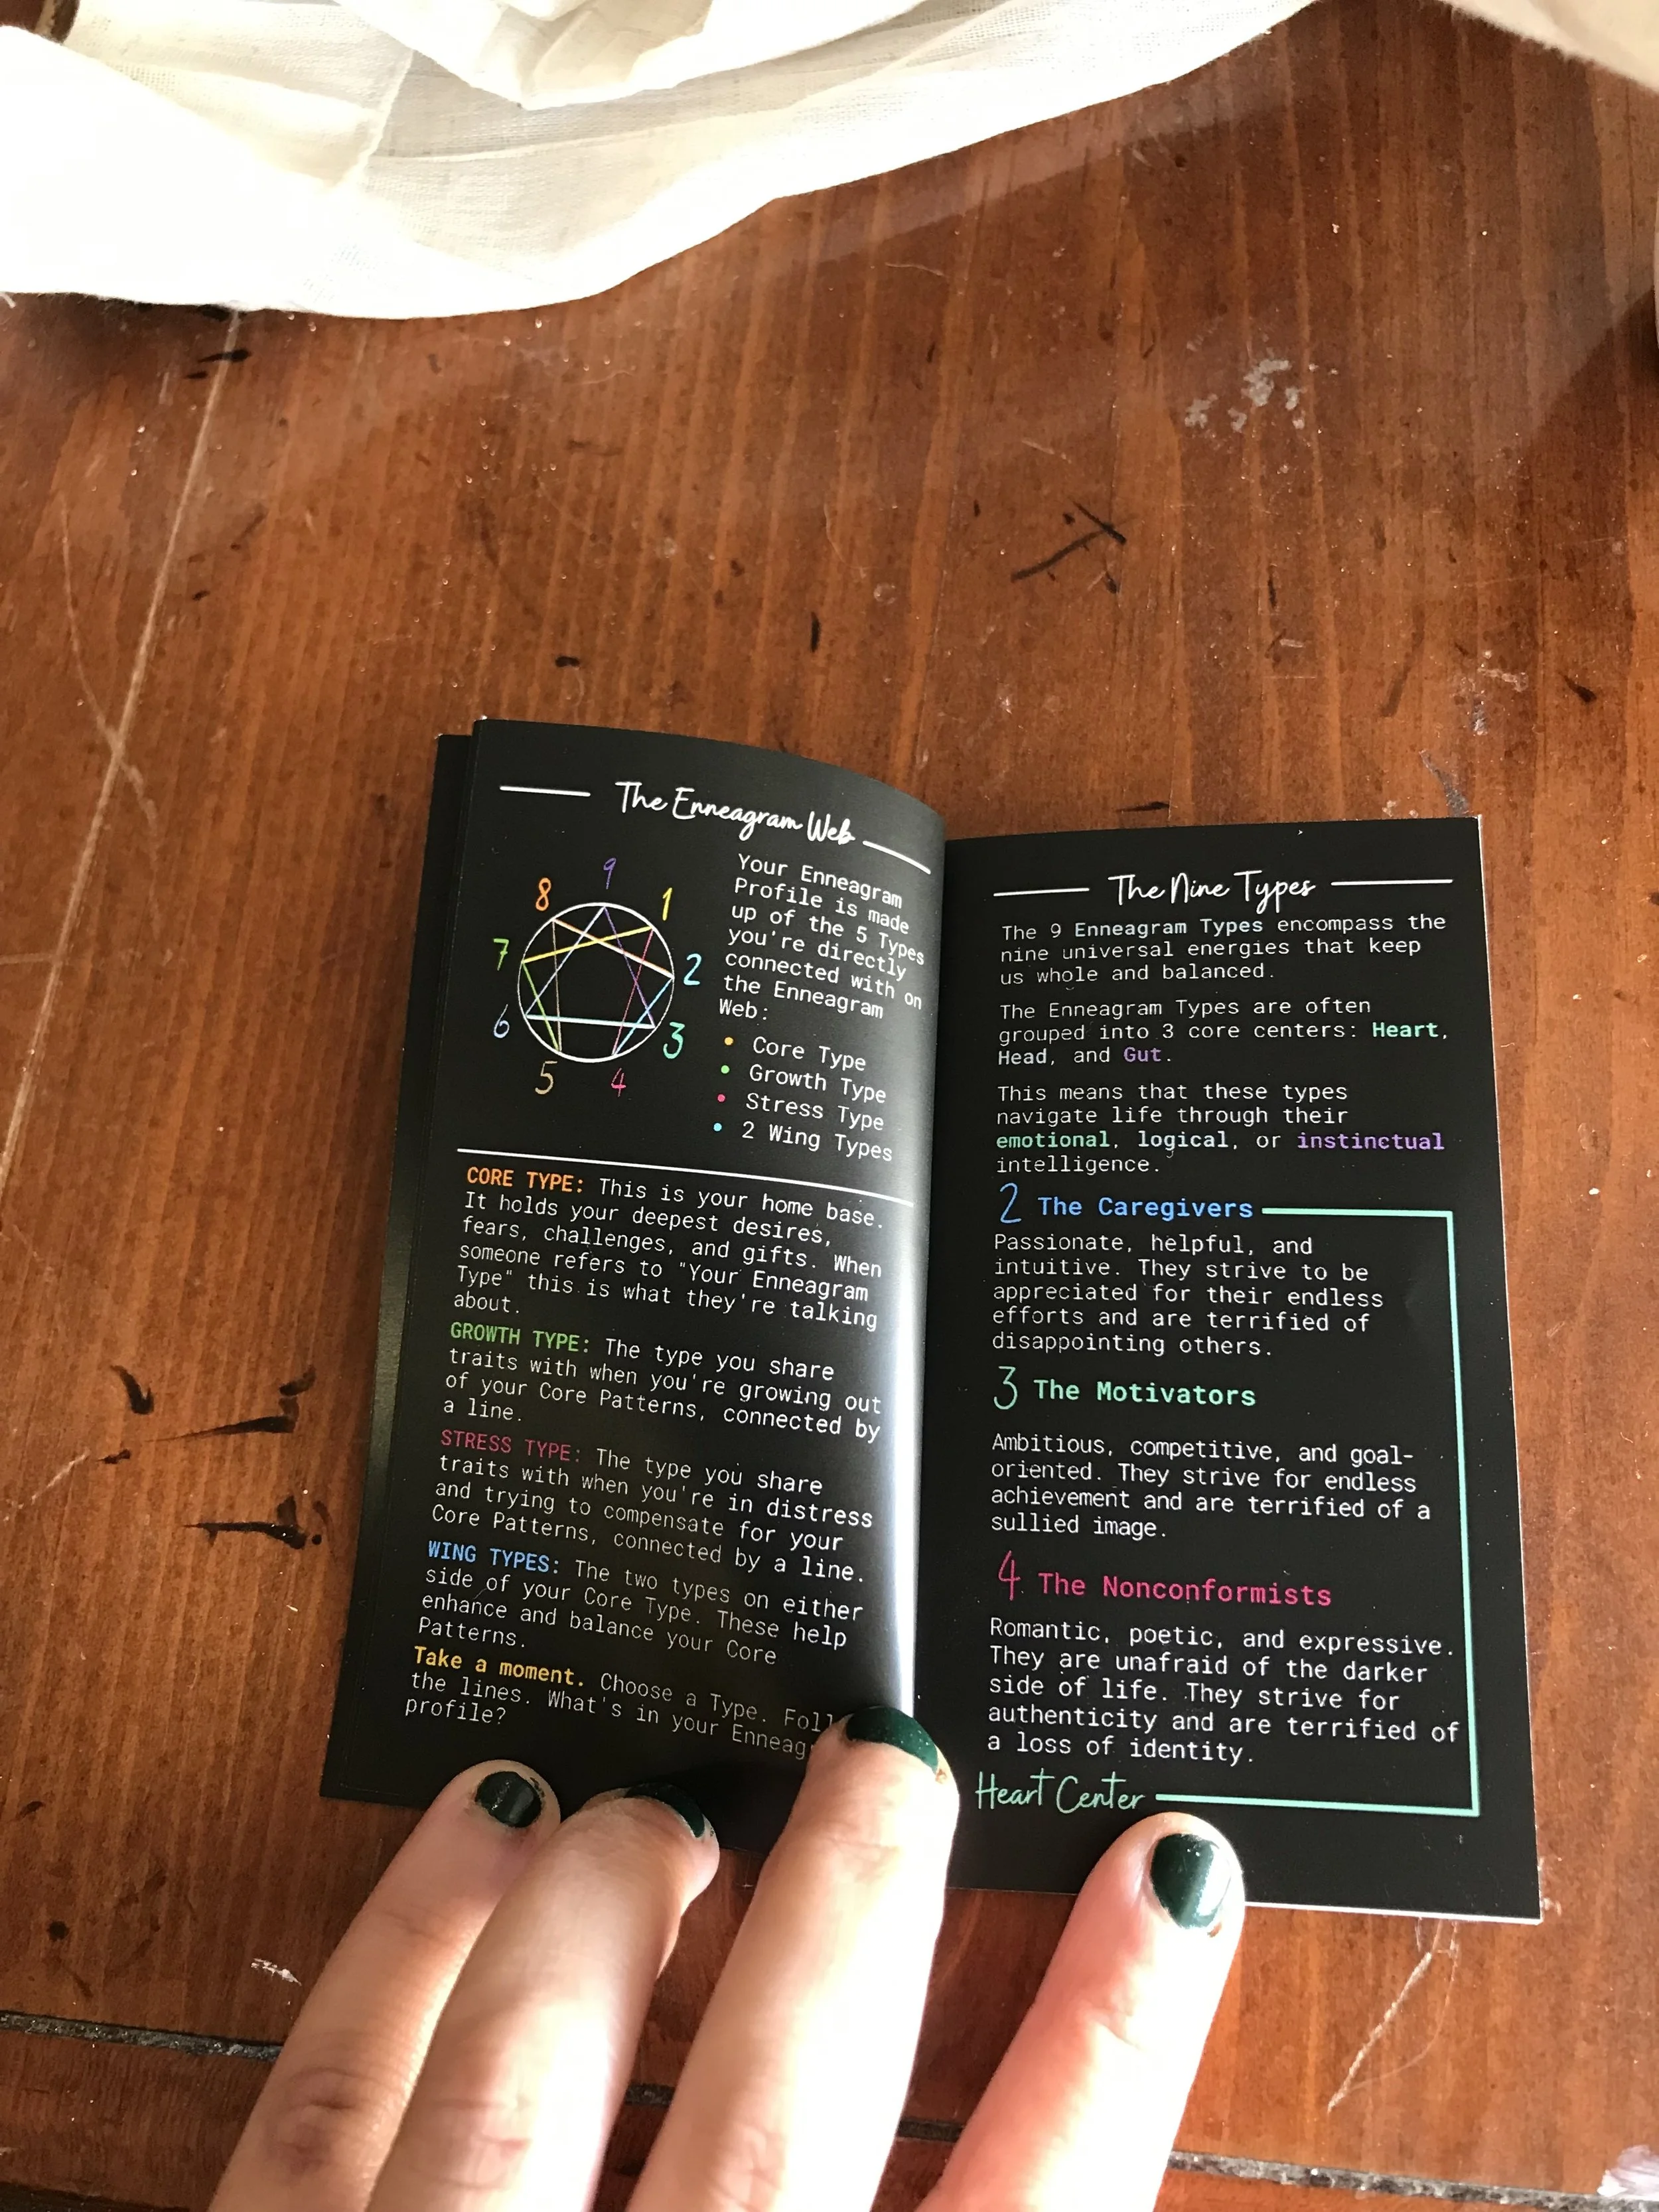 The Enneagram Web
9
8
1
7
2
6
3
5
4
Your Enneagram
Profile is made
up of the 5 Types
you're directly
connected with on
the Enneagram
Web:
• Core Type
• Growth Type
• Stress Type
• 2 Wing Types
CORE TYPE: This is your home base.
It holds your deepest desires,
fears, challenges, and gifts. When
someone refers to "Your Enneagram
Type" this is what they're talking
about.
GROWTH TYPE: The type you share
traits with when you're growing out
of your Core Patterns, connected by
a line.
STRESS TYPE: The type you share
traits with when you're in distress
and trying to compensate for your
Core Patterns, connected by a line.
WING TYPES: The two types on either
side of your Core Type. These help
enhance and balance your Core
Patterns.
Take a moment. Choose a Type.
the lines. What's in your
profile?
The Nine Types
The 9 Enneagram Types encompass the
nine universal energies that keep
us whole and balanced.
The Enneagram Types are often
grouped into 3 core centers: Heart,
Head, and Gut.
This means that these types
navigate life through their
emotional, logical, or instinctual
intelligence.
2 The Caregivers
Passionate, helpful, and
intuitive. They strive to be
appreciated for their endless
efforts and are terrified of
disappointing others.
3 The Motivators
Ambitious, competitive, and goal-
oriented. They strive for endless
achievement and are terrified of a
sullied image.
4 The Nonconformists
Romantic, poetic, and expressive.
They are unafraid of the darker
side of life. They strive for
authenticity and are terrified of
a loss of identity.
Heart Center